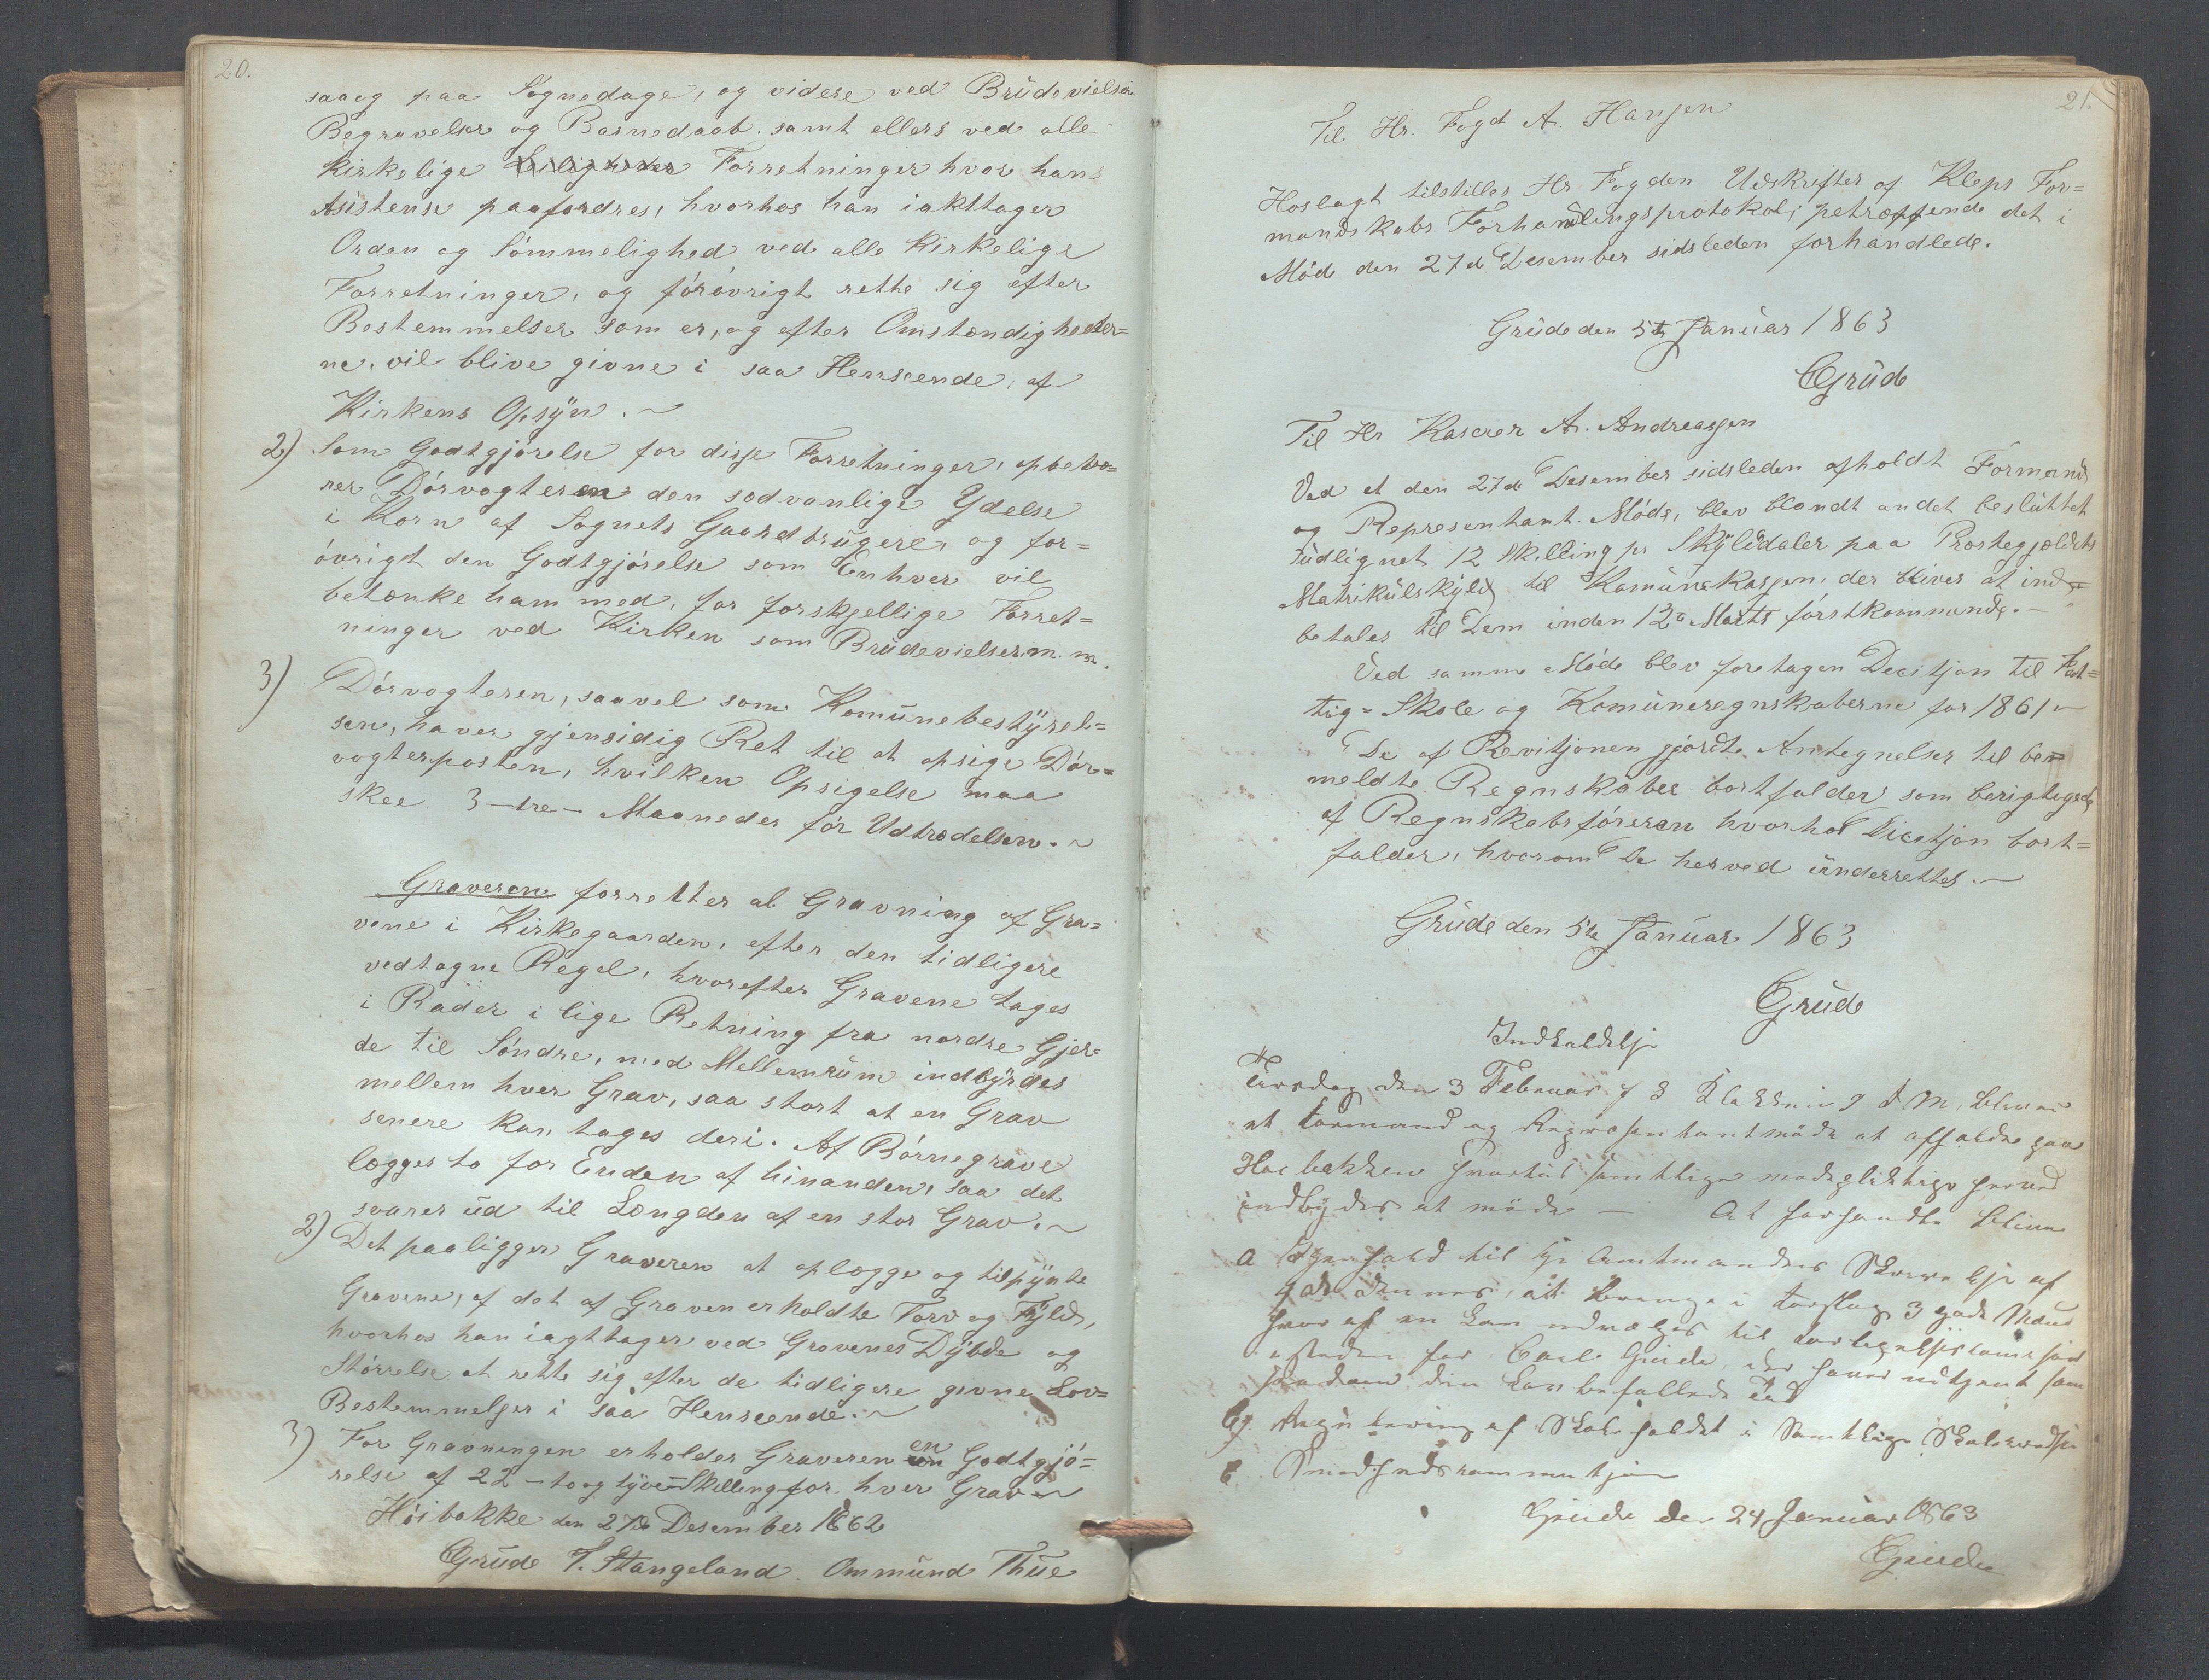 20.
saaog paa Søgnedage, og videre ved Brüdevielser
Begravelser og Barnedaab. samt ellers ved alle
Kirkelige Leiligheder Forretninger hvor hans
Asistense paafordres, hvorhos han iakttager
Orden og Sømmelighed ved alle Kirkelige
Forretninger, og forøvrigt rette sig efter
Bestemmelser som er, og efter Omstændigheder=
ne, vil blive givne i saa Henseende, af
Kirkens Opsÿn. ~
2) Som Godtgjørelse for disse Forretninger, opebæ=
rer Dørvogteren den sædvanlige Ydelse
i Korn af Sognets Gaardbrügere, og for=
øvrigt den Godtgjørelse som Enhver vil
betænke ham med, for forskjellige Forret=
ninger ved Kirken som Brüdevielser m. m.
3) Dørvogteren, saavel som Komünebestÿrel=
sen, haver gjensidig Ret til at opsige Dør=
vogterposten, hvilken Opsigelse maa
skee 3 - tre - Maaneder før Udtrædelsen. ~
Graveren forretter al Gravning af Gra=
vene i Kirkegaarden, efter den tidligere
vedtagne Regel, hvorefter Gravene tages
i Rader i lige Retning fra nordre Gjer=
de til Søndre, med Mellemrüm indbÿrdes
mellem hver Grav, saa stort at en Grav
senere kan tages deri. Af Børnegrave
lægges to for Enden af hinanden, saa det
svarer üd til Længden af en stor Grav. ~
2) Det paaligger Graveren at oplægge og tilpÿnte
Gravene, af det af Graven erholdte Torv og Fÿld,
hvorhos han iagttager ved Gravenes Dÿbde og
Størrelse at rette sig efter de tidligere givne Lov=
Bestemmelser i saa Henseende. ~
3) For Gravningen erholder Graveren en Godtgjø=
relse af 22 - to og tÿve - Skilling for hver Grav ~
Høibakke den 27de Desember 1862
Grüde T. Stangeland. Ommünd Thüe
21.
Til Hr. Fogd A. Hansen
Hoslagt tilstilles Hr Fogden Udskrifter af Kleps For=
mandskabs Forhandlingsprotokol, petræffende det i
Møde den 27de Desember sidsleden forhandlede.
Grüde den 5te Janüar 1863
Grüde
Til Hr Kaserer A. Andreassen
Ved et den 27de Desember sidsleden afholdt Formands
og Representant. Møde, blev blandt andet beslüttet
üdlignet 12 Skilling pr Skÿlddaler paa Prestegjældets
Matrikülskÿld til Komünekassen, der bliver at ind=
betales til Dem inden 12te Marts førstkommende. -
Ved samme Møde blev foretagen Decitjon til Fat=
tig= Skole og Komüneregnskaberne for 1861 ~
De af Revitjonen gjørdte Antegnelser til be=
meldte Regnskaber bortfalder som berigtigede
af Regnskabsføreren hvorhos Dicitjon bort=
falder, hvorom De herved ünderrettes. ~
Grüde den 5te Janüar 1863
Grüde
Indkaldelse
Tirsdag den 3 Februar 63 Klokken 9 F M, bliver
et Formand og Representantmøde at afholde paa
Høibakken hvortil samtlige mødepligtige herved
indbÿdes at møde — At forhandle bliver
a Henhold til Hr Amtmandens Skrivelse af
4de dennes, at bringe i Forslag 3 gode Mænd
hvoraf en kan udvælges til Forligelseskommissær
i steden for Carl Grude, der haver udtjent som
saadan din Lov befallede Tid
b) Regulering af Skoleholdet i Samtlige Skolekredse
c
Grude den 24 Januar 1863
Grude